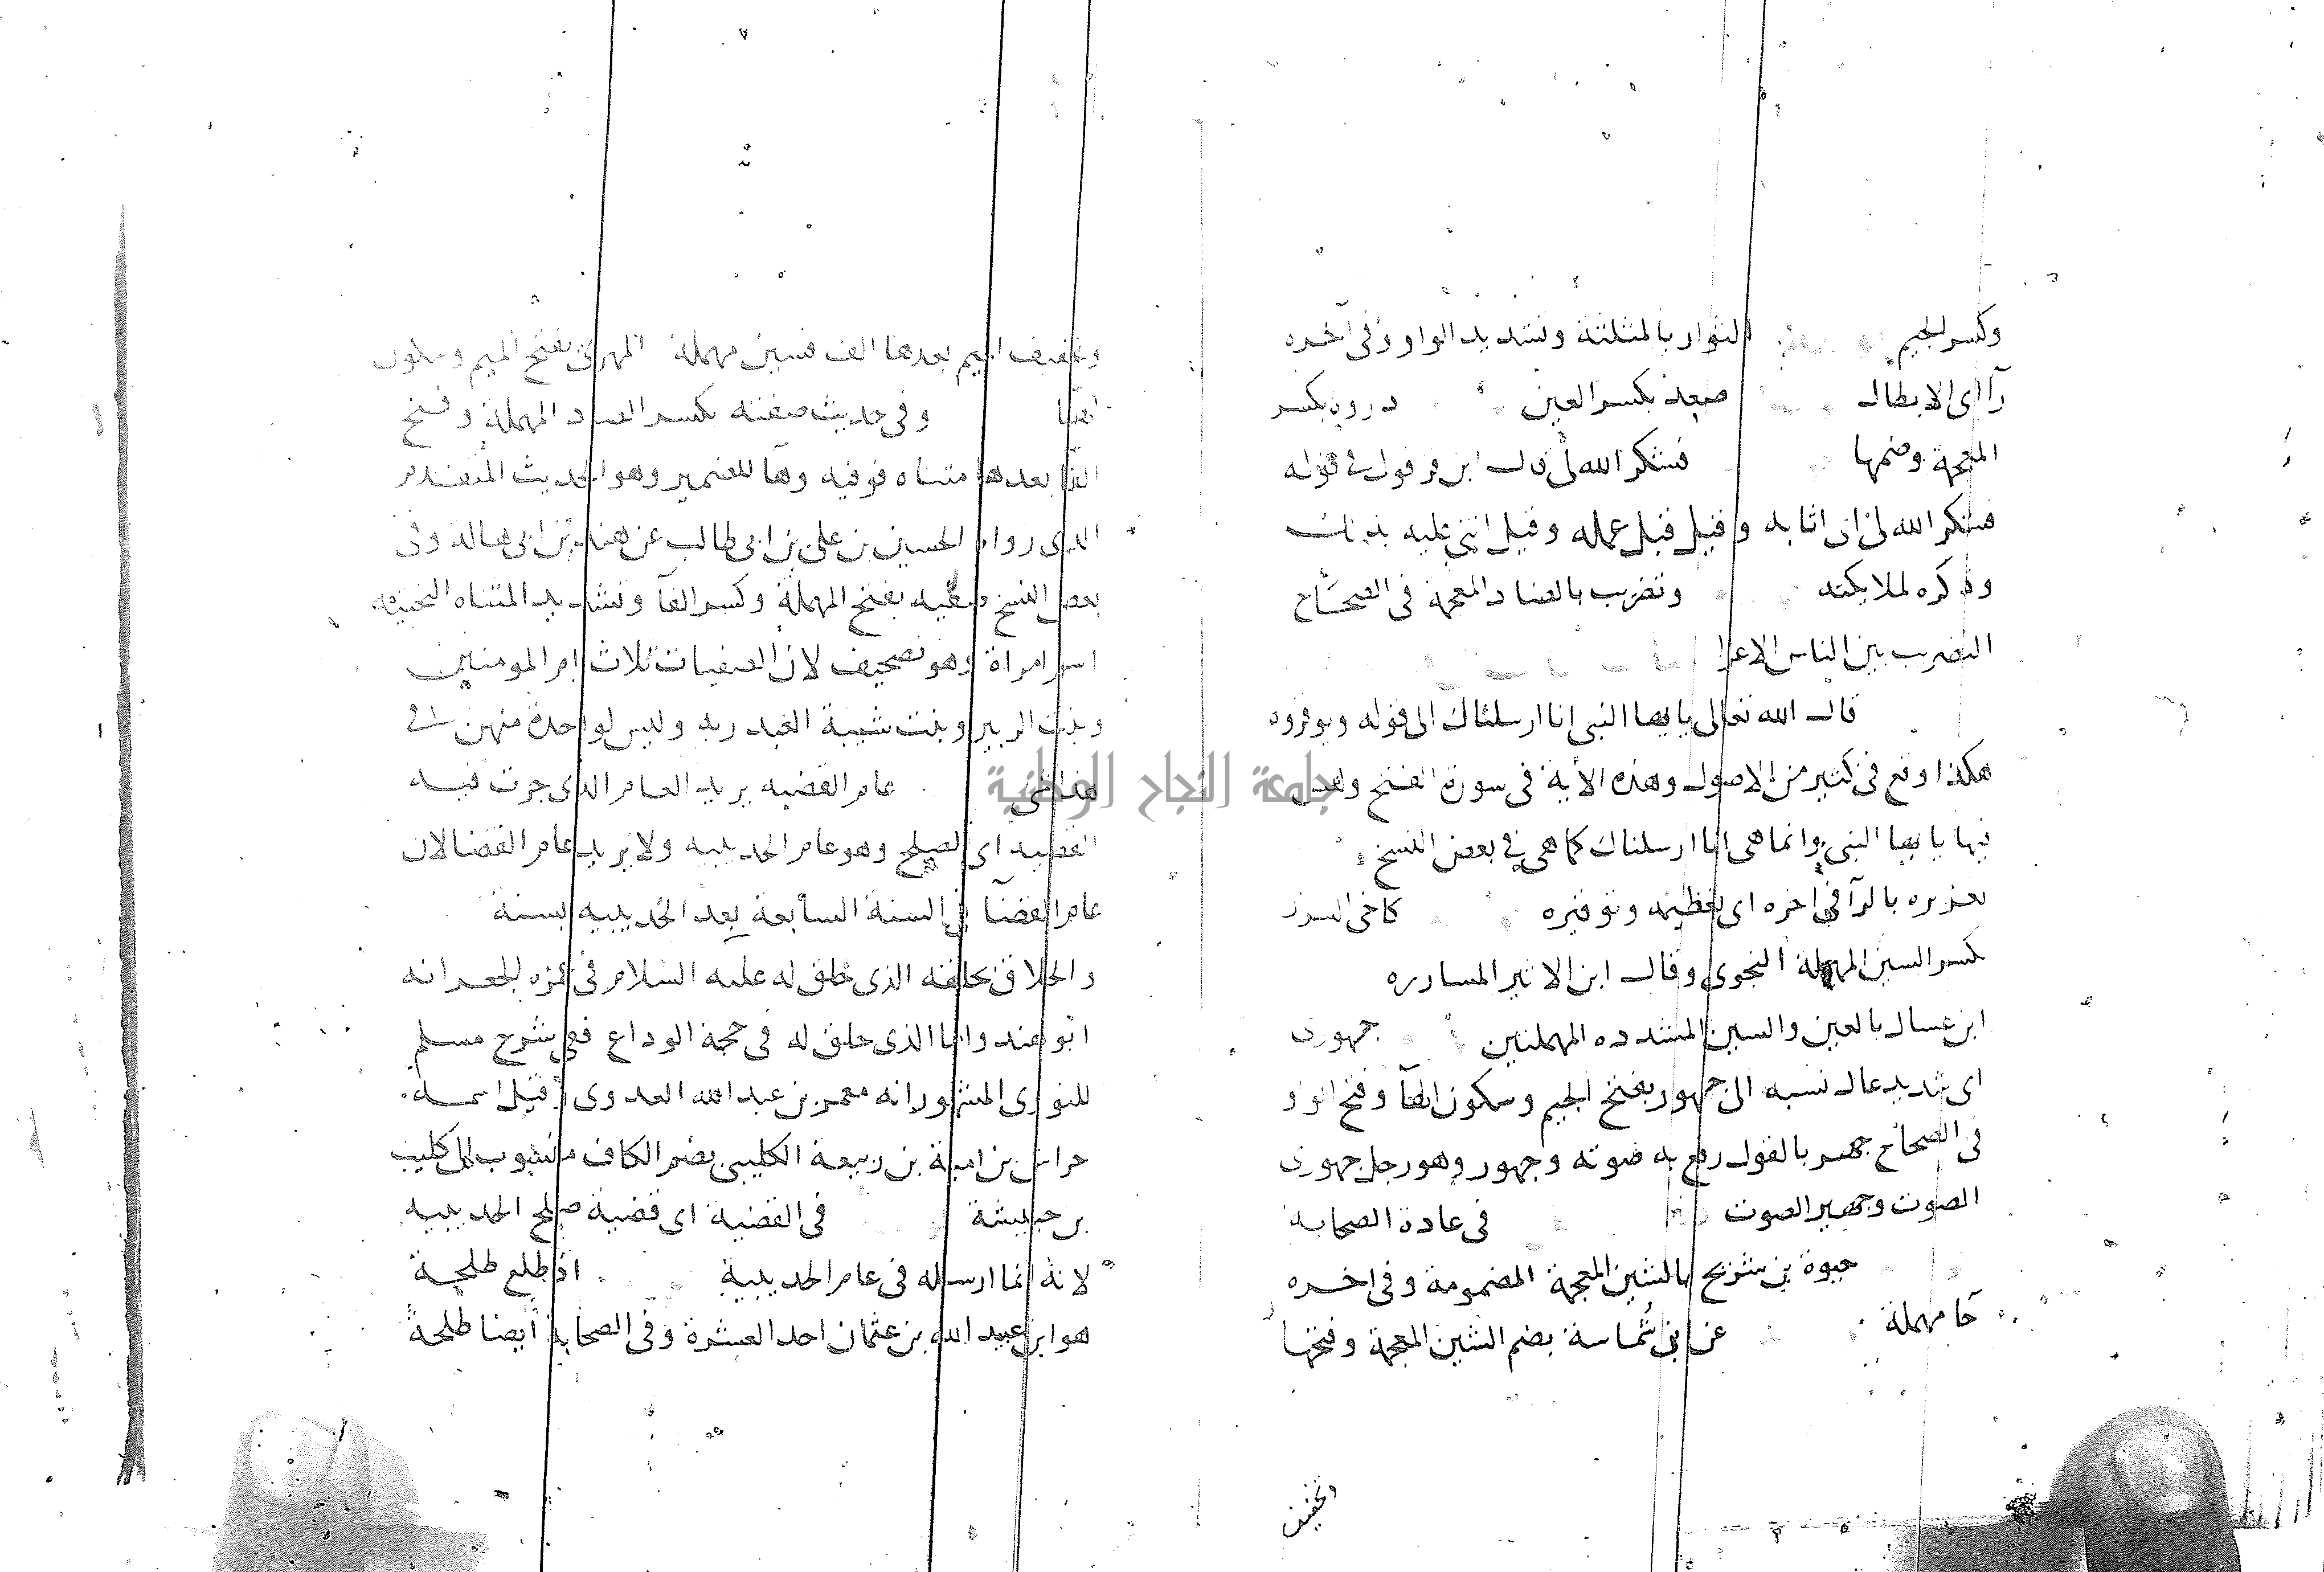 وكسر الجيم الثوار بالمثلثة وتشديد الواو وفي آخره
رآ اى الابطال صعد بكسر العين دروه بكسر
المعجمة وضمها فشكر الله لى قال ابن قرقول فى قوله
فشكر الله لى اى اثابه وقيل قبل عمله وقيل اثنى عليه بذلك
وذكره لملايكته وتضرب بالضاد المعجمة فى الصحاح
التضريب بين الناس الاغرا
قال الله تعالى يا يها النبى انا ارسلناك الى قوله ويوقروه
هكذا وقع فى كثير من الاصول وهذه الآية فى سورة الفتح وليس
فيها يا يها النبى وانما هى انا ارسلناك كما هى فى بعض النسخ
تعزيره بالرآ فى اخره اى تعظيمه وتوقيره كاخى السرار
بكسر السين المهملة النجوى وقال ابن الاثير المساررة
ابن عسال بالعين والسين المشدده المهملتين جهورى
اى شديد عال نسبه الى جهور بفتح الجيم وسكون الهآ وفتح الواو
فى الصحاح جهر بالقول رفع به صوته وجهور وهو رجل جهورى
الصوت وجهير الصوت فى عادة الصحابة
حيوة بن شريح بالشين المعجمة المضمومة وفى اخره
حا مهملة عن ابن شُماسة بضم الشين المعجمة وفتحها
وتخفيف
وتخفيف الميم بعدها الف فسين مهملة المهرى بفتح الميم وسكون
الها وفى حديث صفته بكسر الصاد المهملة وفتح
الفا بعدها مثناه فوقيه وها للضمير وهو الحديث المتقدم
الذى رواه الحسين بن على بن ابى طالب عن هند بن ابى هاله وفى
بعض النسخ صفيه بفتح المهملة وكسر الفآ وتشديد المثناه التحتيه
اسم امراة وهو تصحيف لان الصفيات ثلاث ام المومنين
وبنت الزبير وبنت شيبة العبدريه وليس لواحدة منهن فى
هذا شى عام القضيه يريد العام الذى جرت فيه
القضيه اى الصلح وهو عام الحديبيه ولا يريد عام القضا لان
عام القضآ فى السنة السابعة بعد الحديبيه بسنة
والحلاق يحلقه الذى حلق له عليه السلام فى عمرة الجعرانه
ابو هند واما الذى حلق له فى حجة الوداع ففى شرح مسلم
للنووى المشهور انه معمر بن عبد الله العدوى وقيل اسمه
خراش بن امية بن ربيعة الكليبى بضم الكاف منسوب الى كليب
بن حبيشة فى القضية اى قضية صلح الحديبيه
لانه انما ارسله فى عام الحديبية اذ طلع طلحة
هو ابن عبيد الله بن عثمان احد العشرة وفى الصحابة ايضا طلحة
جامعة النجاح الوطنية